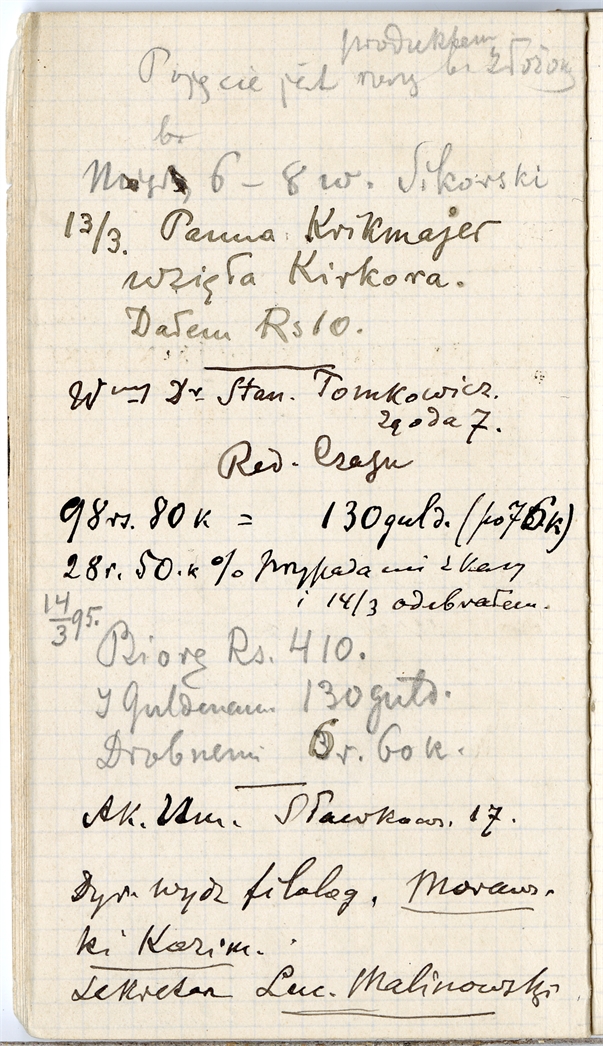 produktem
Pojęcie jest b. złożony
b.
6 – 8 w. Sikorski
13/3. Panna Krikmajer
wzięła Kirkora.
Dałem Rs 10.
Wny Dr Stan. Tomkowicz.
zgoda 7.
Red. Czasu
98 rs. 80 k = 130 guld. (po 76 k)
28 r. 50. k % przypada mi z kasy
i 14/3 odebrałem.
14/3 95.
Biorę Rs. 410.
I Guldenami 130 guld.
Drobnemi 6 r. 60 k.
Ak. Um. Sławkow. 17.
Dyr. wydz filolog. Moraws-
ki Kazim.
Sekretarz Luc. Malinowski